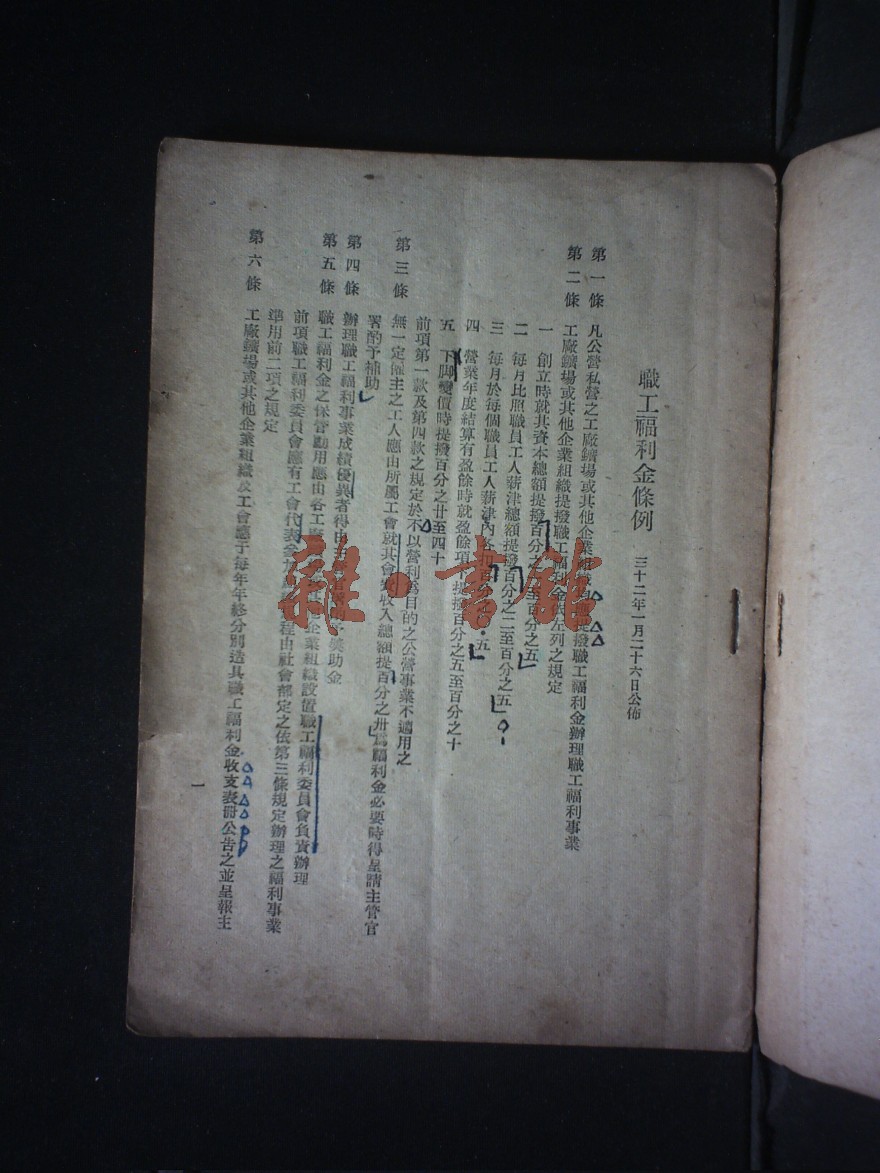 職工福利金條例
三十二年一月二十六日公佈
第一條 凡公營私營之工廠鑛場或其他企業組織 提撥職工福利金辦理職工福利事業
第二條 工廠鑛場或其他企業組織提撥職工福利金 左列之規定
一 創立時就其資本總額提撥百分之 至百分之五
二 每月比照職員工人薪津總額提撥百分之二至百分之五
三 每月於每個職員工人薪津內各 百分 ・五
四 營業年度結算有盈餘時就盈餘項下提撥百分之五至百分之十
五 下脚變價時提撥百分之廿至四十
前項第一款及第四款之規定於不以營利為目的之公營事業不適用之
第三條 無一定僱主之工人應由所屬工會就其會 收入總額提百分之卅為福利金必要時得呈請主管官
署酌予補助
第四條 辦理職工福利事業成績優異者得由主 獎助金
第五條 職工福利金之保管動用應由各工廠 企業組織設置職工福利委員會負責辦理
前項職工福利委員會應有工會代表參加 程由社會部定之依第三條規定辦理之福利事業
準用前二項之規定
第六條 工廠鑛場或其他企業組織及工會應于每年年終分別造具職工福利金收支表冊公告之並呈報主
一
雜・書館